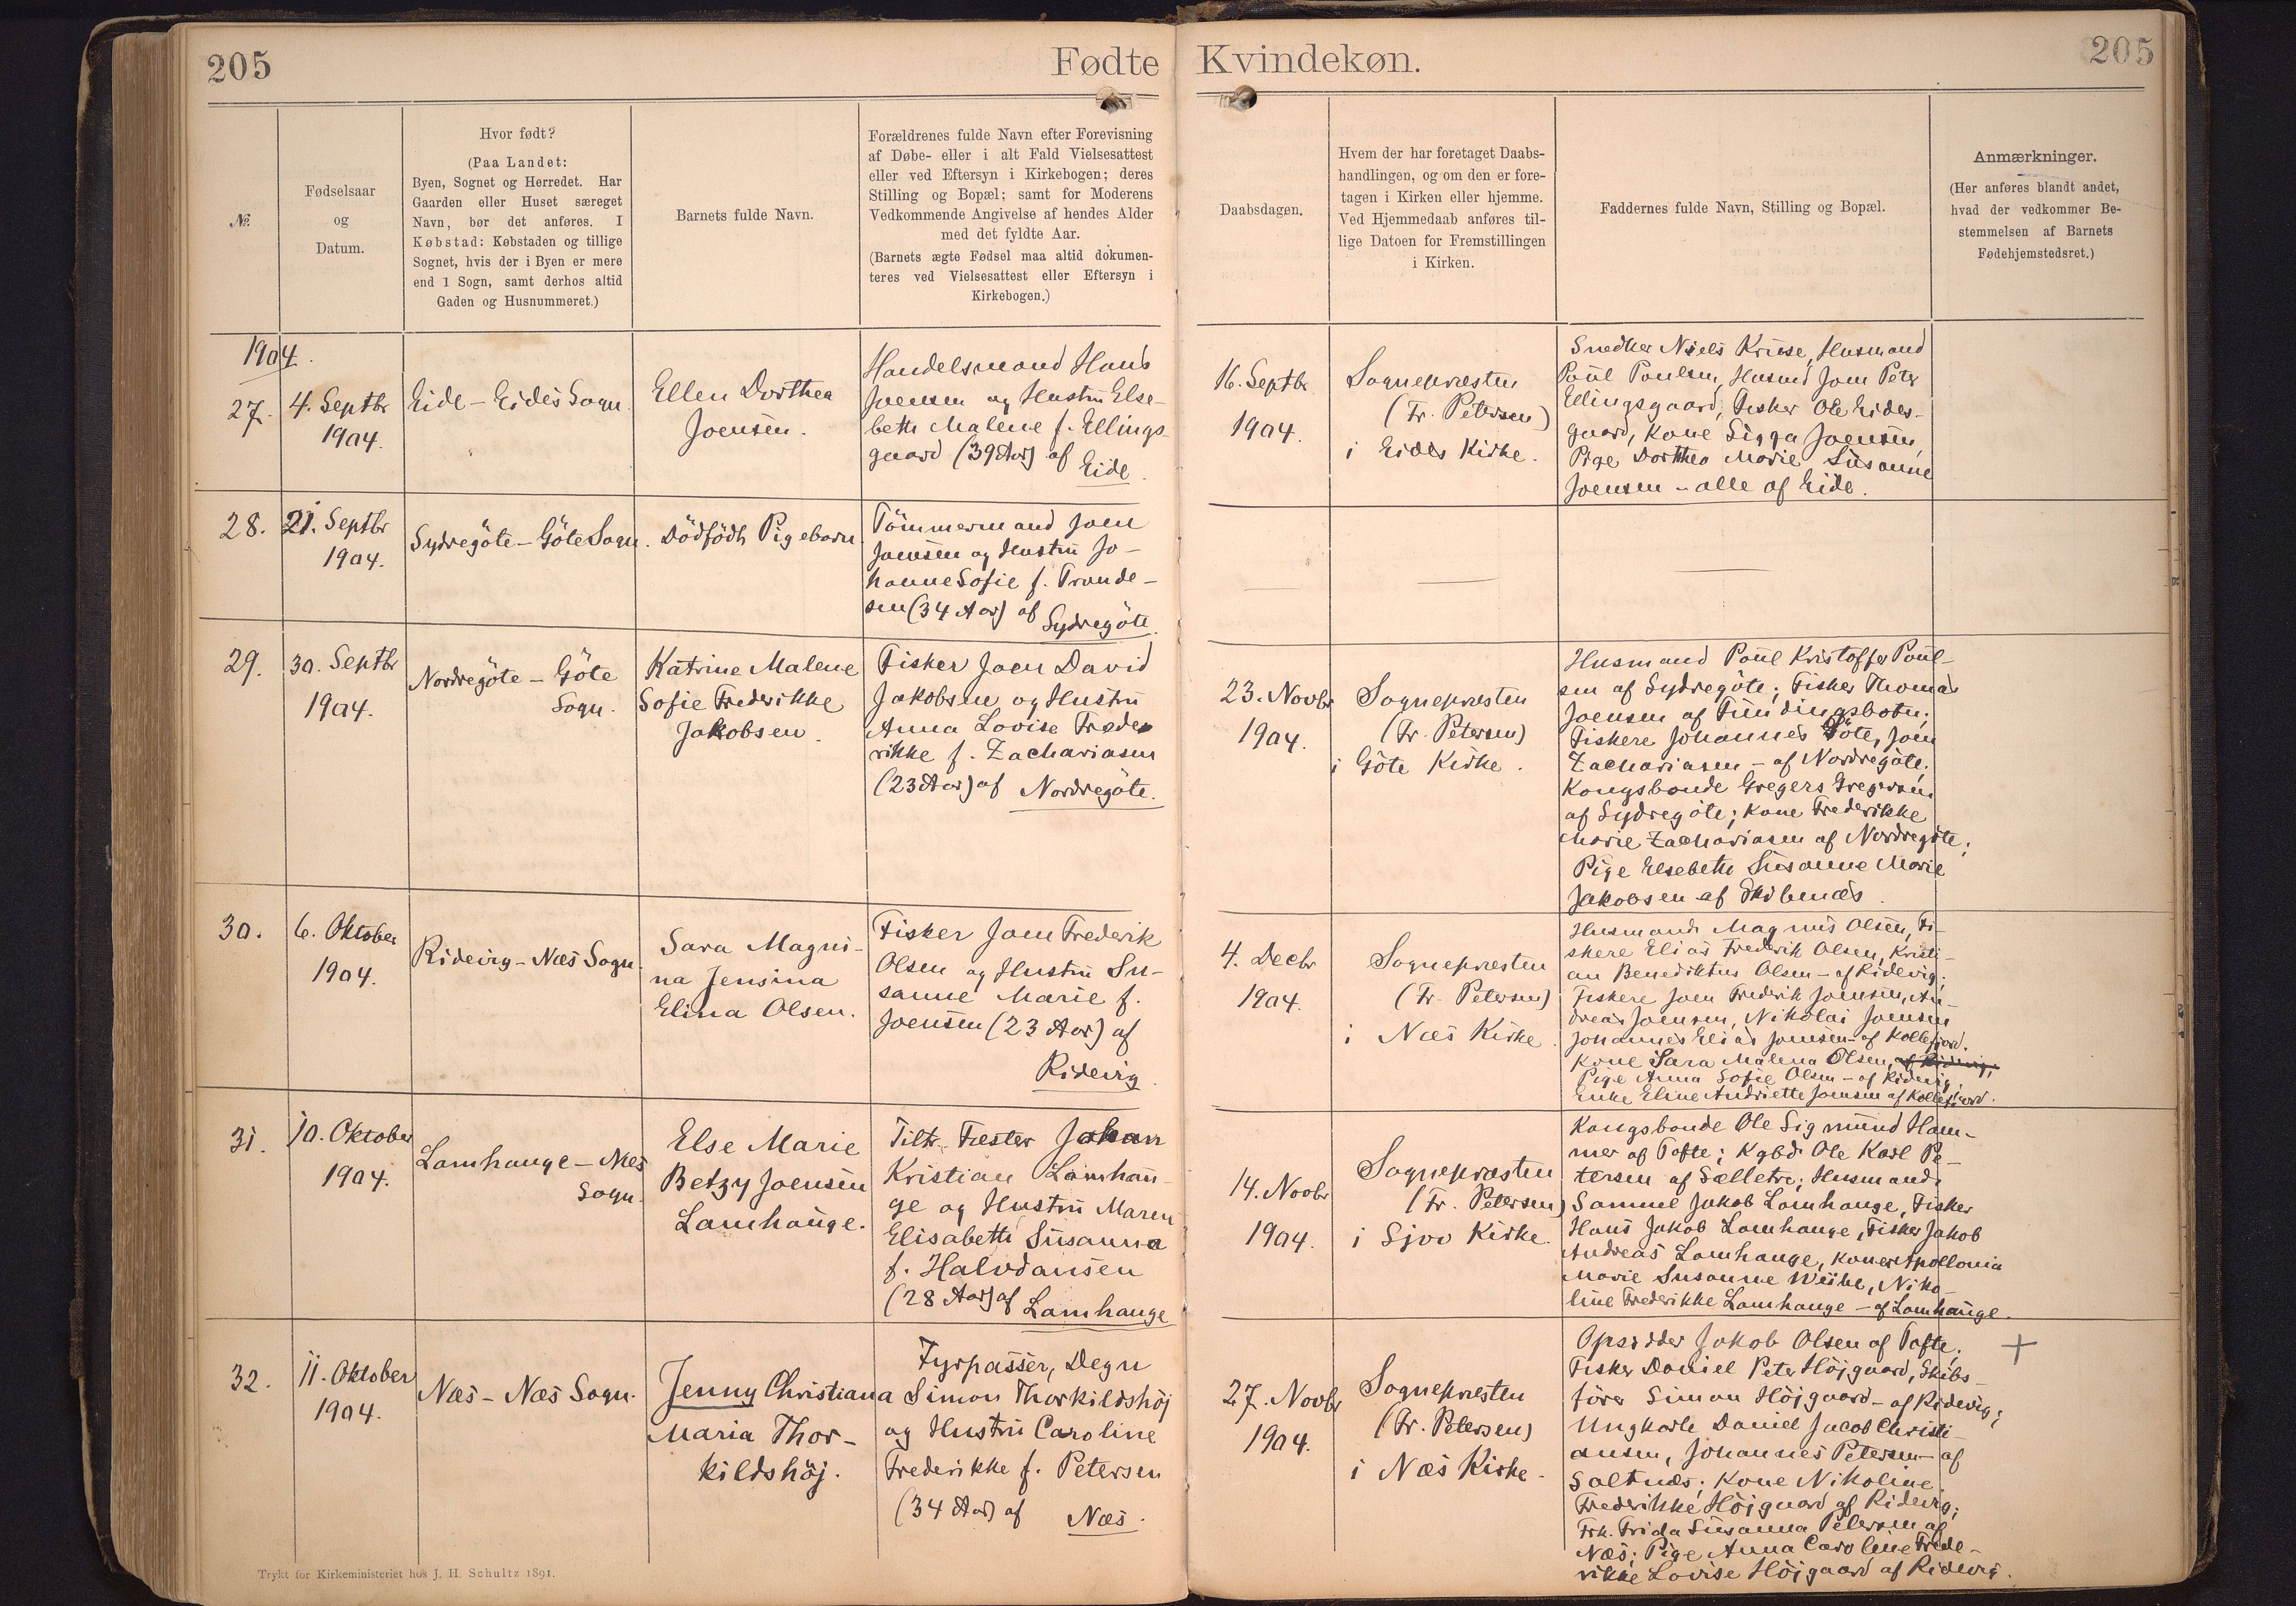 205
Fødte
Kvindekøn.
205
№
Fødselsaar
og
Datum.
Hvor født?
(Paa Landet:
Byen, Sognet og Herredet. Har
Gaarden eller Huset særeget
Navn, bør det anføres. I
Købstad: Købstaden og tillige
Sognet, hvis der i Byen er mere
end 1 Sogn, samt derhos altid
Gaden og Husnummeret.)
Barnets fulde Navn.
Forældrenes fulde Navn efter Forevisning
af Døbe- eller i alt Fald Vielsesattest
eller ved Eftersyn i Kirkebogen; deres
Stilling og Bopæl; samt for Moderens
Vedkommende Angivelse af hendes Alder
med det fyldte Aar.
(Barnets ægte Fødsel maa altid dokumen-
teres ved Vielsesattest eller Eftersyn i
Kirkebogen.)
Daabsdagen.
Hvem der har foretaget Daabs-
handlingen, og om den er fore-
tagen i Kirken eller hjemme.
Ved Hjemmedaab anføres til-
lige Datoen for Fremstillingen
i Kirken.
Faddernes fulde Navn, Stilling og Bopæl.
Anmærkninger.
(Her anføres blandt andet,
hvad der vedkommer Be-
stemmelsen af Barnets
Fødehjemstedsret.)
1904.
27.
4. Septbr
1904.
Eide - Eides Sogn.
Ellen Dorthea
Joensen.
Handelsmand Hans
Joensen og Hustru Else-
beth Malene f. Ellings-
gaard (39 Aar) af
Eide.
16. Septbr
1904.
Sognepræsten
(Fr. Petersen)
i Eides Kirke.
Snedker Niels Kruse, Husmand
Poul Poulsen, Husmd Joen Peter
Ellingsgaard, Fisker Ole Eides-
gaard, Kone Sigga Joensen,
Pige Dorthea Marie Susanne
Joensen - alle af Eide.
28.
21. Septbr
1904.
Sydregöte - Göte Sogn.
Dödfödt Pigebarn
Tömmermand Joen
Joensen og Hustru Jo-
hanne Sofie f. Tronde-
sen (34 Aar) af
Sydregöte.
29.
30. Septbr
1904.
Nordregöte - Göte
Sogn.
Katrine Malene
Sofie Frederikke
Jakobsen.
Fisker Joen David
Jakobsen og Hustru
Anna Lovise Frede-
rikke f. Zachariasen
(23 Aar) af Nordregöte.
23. Novbr
1904.
Sognepræsten
(Fr. Petersen)
i Göte Kirke.
Husmand Poul Kristoffer Poul-
sen af Sydregöte; Fisker Thomas
Joensen af Fundingsbotn;
Fiskere Johannes Göte, Joen
Zachariasen - af Nordregöte;
Kongsbonde Gregers Gregersen
af Sydregöte; Kone Frederikke
Marie Zachariasen af Nordregöte;
Pige Elsebeth Susanne Marie
Jakobsen af Skibenæs.
30.
6. Oktober
1904.
Ridevig - Næs Sogn.
Sara Magni-
na Jensina
Elina Olsen.
Fisker Joen Frederik
Olsen og Hustru Su-
sanne Marie f.
Joensen (23 Aar) af
Ridevig.
4. Decbr
1904.
Sognepræsten
(Fr. Petersen)
i Næs Kirke.
Husmand Magnus Olsen, Fi-
skere Elias Frederik Olsen, Kristi-
an Benediktus Olsen - af Ridevig;
Fiskere Joen Frederik Joensen, An-
dreas Joensen, Nikolai Joensen
Johannes Elias Joensen - af Kollefjord.
Kone Sara Malena Olsen, af Ridevig,
Pige Anna Sofie Olsen - af Ridevig,
Enke Eline Andriette Joensen af Kollefjord.
31.
10. Oktober
1904.
Lamhauge - Næs
Sogn.
Else Marie
Betzy Joensen
Lamhauge.
Tiltr. Fæster Johan
Kristian Lamhau-
ge og Hustru Maren
Elisabeth Susanna
f. Halvdansen
(28 Aar) af Lamhauge
14. Novbr
1904.
Sognepræsten
(Fr. Petersen)
i Sjov Kirke.
Kongsbonde Ole Sigmund Ham-
mer af Tofte; Kgbd. Ole Karl Pe-
tersen af Sælletre; Husmand
Samuel Jakob Lamhauge, Fisker
Hans Jakob Lamhauge, Fisker Jakob
Andreas Lamhauge, Koner Apollonia
Marie Susanne Weihe, Niko-
line Frederikke Lamhauge - af Lamhauge.
32.
11. Oktober
1904.
Næs - Næs Sogn.
Jenny Christiana
Maria Thor-
kildshöj.
Fyrpasser, Degn
Simon Thorkildshöj
og Hustru Caroline
Frederikke f. Petersen
(34 Aar) af Næs.
27. Novbr
1904.
Sognepræsten
(Fr. Petersen)
i Næs Kirke.
Opsidder Jakob Olsen af Tofte;
Fisker Daniel Peter Höjgaard, Skibs-
förer Simon Höjgaard - af Ridevig;
Ungkarle Daniel Jacob Christi-
ansen, Johannes Petersen - af
Saltnæs; Kone Nikoline
Frederikke Höjgaard af Ridevig;
Frk. Frida Susanna Petersen af
Næs; Pige Anna Caroline Frede-
rikke Lovise Höjgaard af Ridevig.
+
Trykt for Kirkeministeriet hos J. H. Schultz 1891.